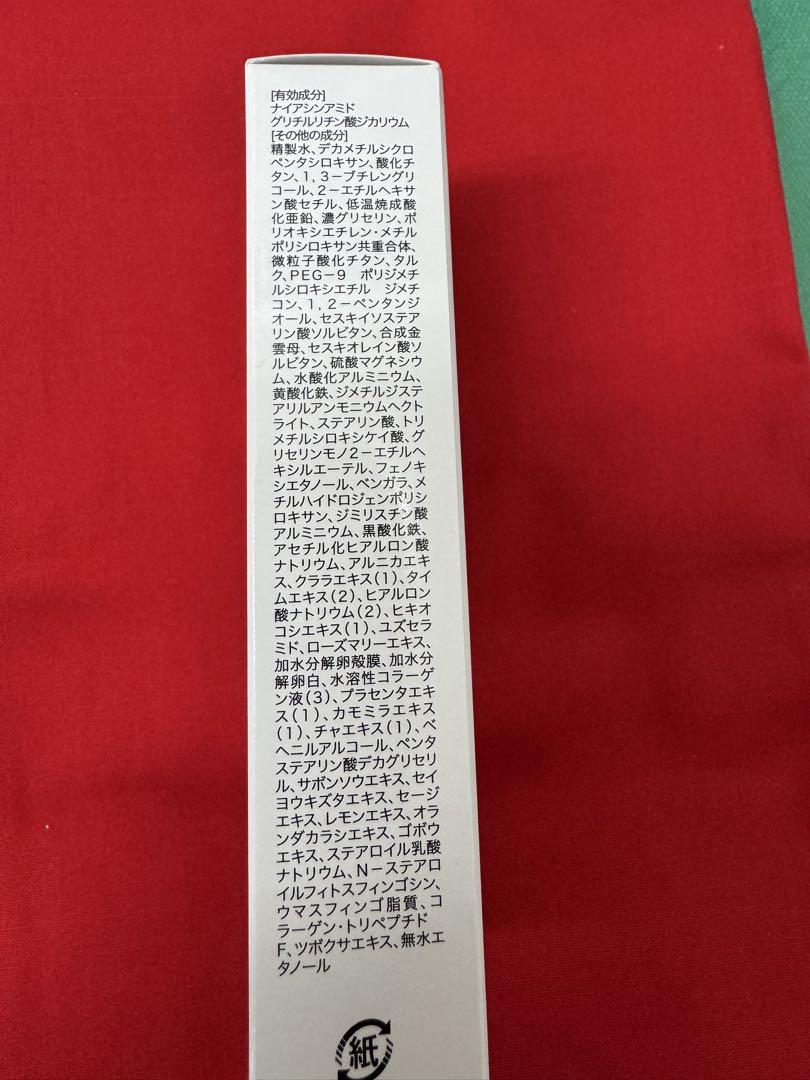 [有効成分]
ナイアシンアミド
グリチルリチン酸ジカリウム
[その他の成分]
精製水、デカメチルシクロ
ペンタシロキサン、酸化チ
タン、1,3－ブチレングリ
コール、2－エチルヘキサ
ン酸セチル、低温焼成酸
化亜鉛、濃グリセリン、ポ
リオキシエチレン・メチル
ポリシロキサン共重合体、
微粒子酸化チタン、タル
ク、PEG－9　ポリジメチ
ルシロキシエチル　ジメチ
コン、1,2－ペンタンジ
オール、セスキイソステア
リン酸ソルビタン、合成金
雲母、セスキオレイン酸ソ
ルビタン、硫酸マグネシウ
ム、水酸化アルミニウム、
黄酸化鉄、ジメチルジステ
アリルアンモニウムヘクト
ライト、ステアリン酸、トリ
メチルシロキシケイ酸、グ
リセリンモノ2－エチルヘ
キシルエーテル、フェノキ
シエタノール、ベンガラ、メ
チルハイドロジェンポリシ
ロキサン、ジミリスチン酸
アルミニウム、黒酸化鉄、
アセチル化ヒアルロン酸
ナトリウム、アルニカエキ
ス、クララエキス(1)、タイ
ムエキス(2)、ヒアルロン
酸ナトリウム(2)、ヒキオ
コシエキス(1)、ユズセラ
ミド、ローズマリーエキス、
加水分解卵殻膜、加水分
解卵白、水溶性コラーゲ
ン液(3)、プラセンタエキ
ス(1)、カモミラエキス
(1)、チャエキス(1)、ベ
ヘニルアルコール、ペンタ
ステアリン酸デカグリセリ
ル、サボンソウエキス、セイ
ヨウキズタエキス、セージ
エキス、レモンエキス、オラ
ンダカラシエキス、ゴボウ
エキス、ステアロイル乳酸
ナトリウム、N－ステアロ
イルフィトスフィンゴシン、
ウマスフィンゴ脂質、コ
ラーゲン・トリペプチド
F、ツボクサエキス、無水エ
タノール
紙